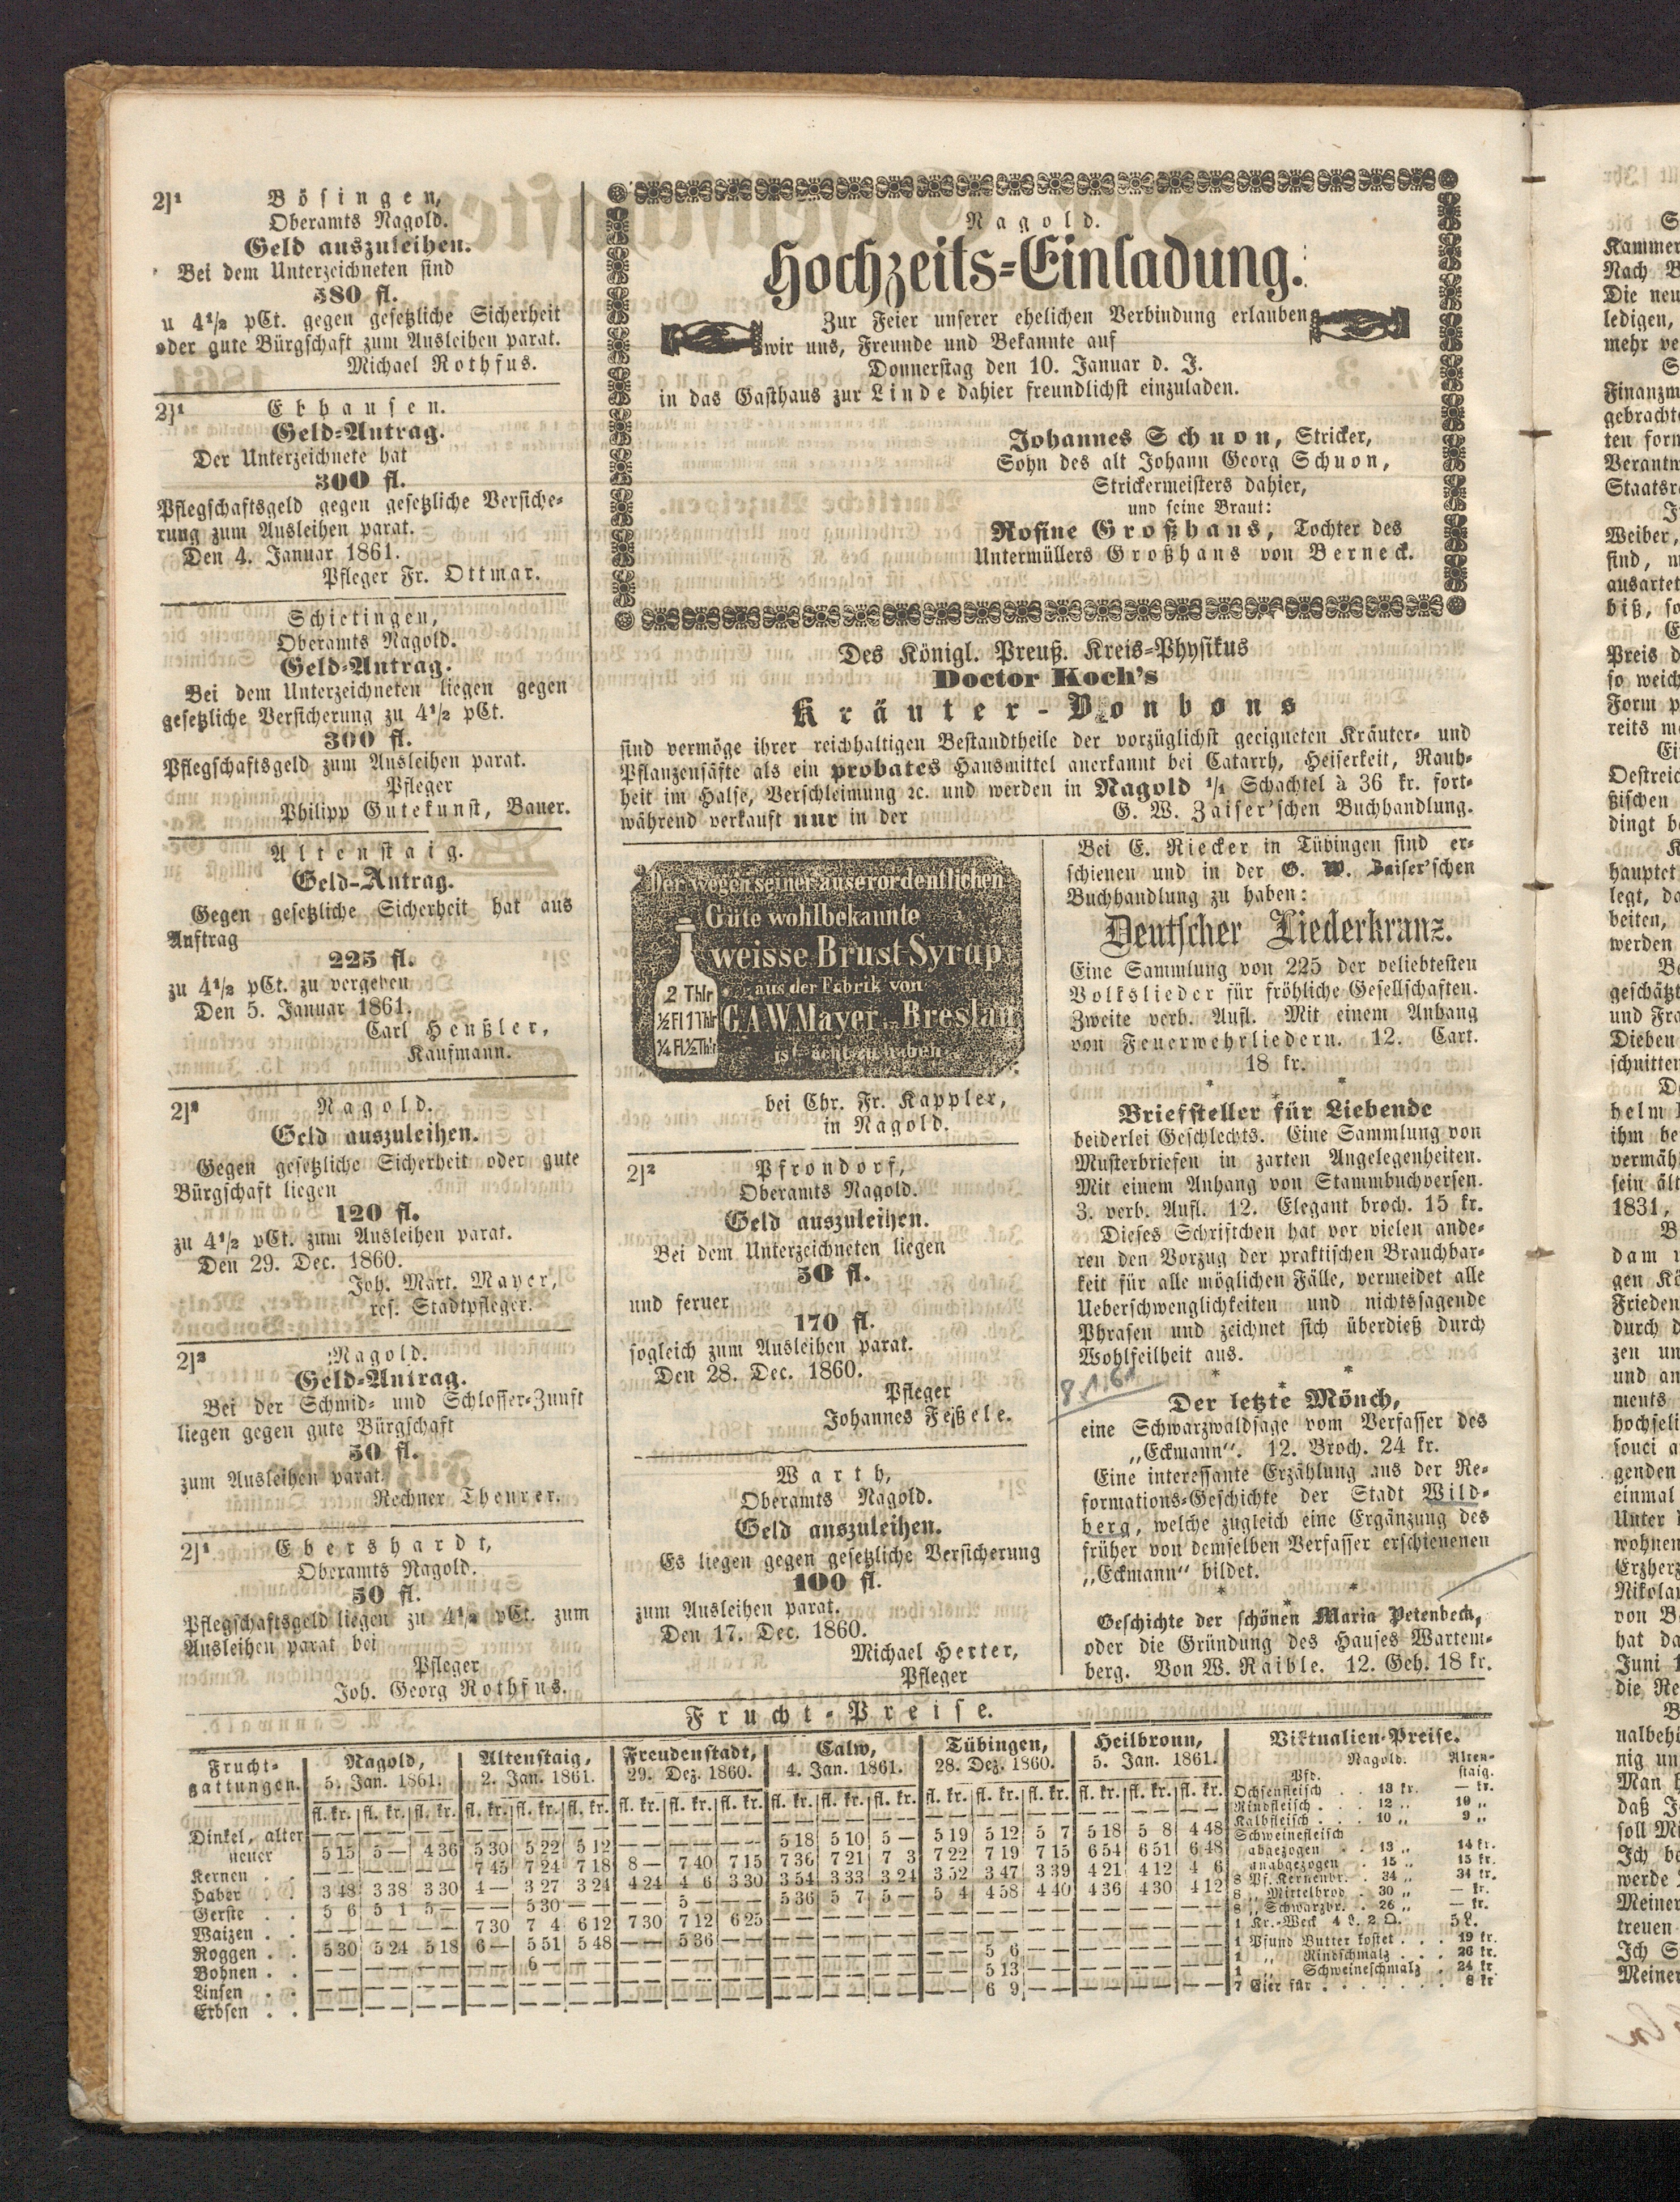 2]¹ Bösingen,
Oberamts Nagold.
Geld auszuleihen.
Bei dem Unterzeichneten sind
380 fl.
u 4½ pCt. gegen gesetzliche Sicherheit
oder gute Bürgschaft zum Ausleihen parat.
Michael Rothfus.
2]¹ Ebhausen.
Geld-Antrag.
Der Unterzeichnete hat
300 fl.
Pflegschaftsgeld gegen gesetzliche Versiche-
rung zum Ausleihen parat.
Den 4. Januar 1861.
Pfleger Fr. Ottmar.
Schietingen,
Oberamts Nagold.
Geld-Antrag.
Bei dem Unterzeichneten liegen gegen
gesetzliche Versicherung zu 4½ pCt.
300 fl.
Pflegschaftsgeld zum Ausleihen parat.
Pfleger
Philipp Gutekunst, Bauer.
Altenstaig.
Geld-Antrag.
Gegen gesetzliche Sicherheit hat aus
Auftrag
225 fl.
zu 4½ pCt. zu vergeben
Den 5. Januar 1861.
Carl Henßler,
Kaufmann.
2]² Nagold.
Geld auszuleihen.
Gegen gesetzliche Sicherheit oder gute
Bürgschaft liegen
120 fl.
zu 4½ pCt. zum Ausleihen parat.
Den 29. Dec. 1860.
Joh. Mart. Mayer,
res. Stadtpfleger.
2]² Nagold.
Geld-Antrag.
Bei der Schmid- und Schlosser-Zunft
liegen gegen gute Bürgschaft
50 fl.
zum Ausleihen parat.
Rechner Theurer.
2]¹ Ebershardt,
Oberamts Nagold.
50 fl.
Pflegschaftsgeld liegen zu 4½ pCt. zum
Ausleihen parat bei
Pfleger
Joh. Georg Rothfus.
Nagold.
Hochzeits-Einladung.
Zur Feier unserer ehelichen Verbindung erlauben
wir uns, Freunde und Bekannte auf
Donnerstag den 10. Januar d. J.
in das Gasthaus zur Linde dahier freundlichst einzuladen.
Johannes Schuon, Stricker,
Sohn des alt Johann Georg Schuon,
Strickermeisters dahier,
und seine Braut:
Rosine Großhans, Tochter des
Untermüllers Großhans von Berneck.
Des Königl. Preuß. Kreis-Physikus
Doctor Koch's
Kräuter-Bonbons
sind vermöge ihrer reichhaltigen Bestandtheile der vorzüglichst geeigneten Kräuter- und
Pflanzensäfte als ein probates Hausmittel anerkannt bei Catarrh, Heiserkeit, Rauh-
heit im Halse, Verschleimung ꝛc. und werden in Nagold ¹/₁ Schachtel à 36 kr. fort-
während verkauft nur in der G. W. Zaiser'schen Buchhandlung.
Der wegen seiner auserordentlichen
Güte wohlbekannte
weisse Brust Syrup
aus der Fabrik von
2 Thlr
½ Fl 1 Thlr G.A.W. Mayer in Breslau
¼ Fl ½ Thlr ist ächt zu haben
bei Chr. Fr. Kappler,
in Nagold.
2]² Pfrondorf,
Oberamts Nagold.
Geld auszuleihen.
Bei dem Unterzeichneten liegen
50 fl.
und ferner
170 fl.
sogleich zum Ausleihen parat.
Den 28. Dec. 1860.
Pfleger
Johannes Feßele.
Warth,
Oberamts Nagold.
Geld auszuleihen.
Es liegen gegen gesetzliche Versicherung
100 fl.
zum Ausleihen parat.
Den 17. Dec. 1860.
Michael Herter,
Pfleger
Bei E. Riecker in Tübingen sind er-
schienen und in der G. W. Zaiser'schen
Buchhandlung zu haben:
Deutscher Liederkranz.
Eine Sammlung von 225 der beliebtesten
Volkslieder für fröhliche Gesellschaften.
Zweite verb. Aufl. Mit einem Anhang
von Feuerwehrliedern. 12. Cart.
18 kr.
* * *
Briefsteller für Liebende
beiderlei Geschlechts. Eine Sammlung von
Musterbriefen in zarten Angelegenheiten.
Mit einem Anhang von Stammbuchversen.
3. verb. Aufl. 12. Elegant broch. 15 kr.
Dieses Schriftchen hat vor vielen ande-
ren den Vorzug der praktischen Brauchbar-
keit für alle möglichen Fälle, vermeidet alle
Ueberschwenglichkeiten und nichtssagende
Phrasen und zeichnet sich überdieß durch
Wohlfeilheit aus.
* * *
8.1.61
Der letzte Mönch,
eine Schwarzwaldsage vom Verfasser des
„Eckmann“. 12. Broch. 24 kr.
Eine interessante Erzählung aus der Re-
formations-Geschichte der Stadt Wild-
berg, welche zugleich eine Ergänzung des
früher von demselben Verfasser erschienenen
„Eckmann“ bildet.
* * *
Geschichte der schönen Maria Petenbeck,
oder die Gründung des Hauses Wartem-
berg. Von W. Raible. 12. Geh. 18 kr.
Frucht-Preise.
Frucht-gattungen. Nagold, 5. Jan. 1861. Altenstaig, 2. Jan. 1861. Freudenstadt, 29. Dez. 1860. Calw, 4. Jan. 1861. Tübingen, 28. Dez. 1860. Heilbronn, 5. Jan. 1861.
fl. kr. fl. kr. fl. kr. fl. kr. fl. kr. fl. kr. fl. kr. fl. kr. fl. kr. fl. kr. fl. kr. fl. kr. fl. kr. fl. kr. fl. kr. fl. kr. fl. kr. fl. kr.
Dinkel, alter — — — — — — — — — — — — — — — — — —
neuer 5 15 5 — 4 36 5 30 5 22 5 12 — — — 5 18 5 10 5 — 5 19 5 12 5 7 5 18 5 8 4 48
Kernen . . — — — 7 45 7 24 7 18 8 — 7 40 7 15 7 36 7 21 7 3 7 22 7 19 7 15 6 54 6 51 6 48
Haber . . 3 48 3 38 3 30 4 — 3 27 3 24 4 24 4 6 3 30 3 54 3 33 3 24 3 52 3 47 3 39 4 21 4 12 4 6
Gerste . . 5 6 5 1 5 — — 5 30 — — 5 — — 5 36 5 7 5 — 5 4 4 58 4 40 4 36 4 30 4 12
Waizen . . — — — 7 30 7 4 6 12 7 30 7 12 6 25 — — — — — — — — —
Roggen . . 5 30 5 24 5 18 6 — 5 51 5 48 — 5 36 — — — — — — — — — —
Bohnen . . — — — — 6 — — — — — — — — — 5 6 — — — —
Linsen . . — — — — — — — — — — — — — 5 13 — — — —
Erbsen . . — — — — — — — — — — — — — 6 9 — — — —
Viktualien-Preise.
Nagold. Alten-staig.
Pfd.
Ochsenfleisch . . 13 kr. — kr.
Rindfleisch . . . 12 „ 10 „
Kalbfleisch . . . 10 „ 9 „
Schweinefleisch
abgezogen . . 13 „ 14 kr.
unabgezogen . 15 „ 15 kr.
8 Pf. Kernenbr. . 34 „ 34 kr.
8 „ Mittelbrod . 30 „ — kr.
8 „ Schwarzbr. . 26 „ — kr.
1 Kr.-Weck 4 L. 2 Q. 5 L.
1 Pfund Butter kostet . . . 19 kr.
1 „ Rindschmalz . . . 26 kr.
1 „ Schweineschmalz . 24 kr.
7 Eier für . . . . . . . 8 kr
Kammer
Nach
Die neu
ledigen,
mehr
Finanzm
gebracht
ten
Verantw
Staatsr
Weiber,
sind,
ausartet
biß,
Preis
so weich
Form
reits
Oestreic
ßischen
dingt
hauptet
legt,
beiten,
werden
geschätzt
und
Dieben
schnitten
helm
ihm
vermäh
sein
1831,
dam
gen
Frieden
durch
zen
und
ments
hochseli
souci
genden
einmal
Unter
wohnen
Erzherz
Nikolau
von
hat
Juni
die
nalbehö
nig
Man
daß
soll
Ich
werde
Meiner
treuen
Ich
Meiner